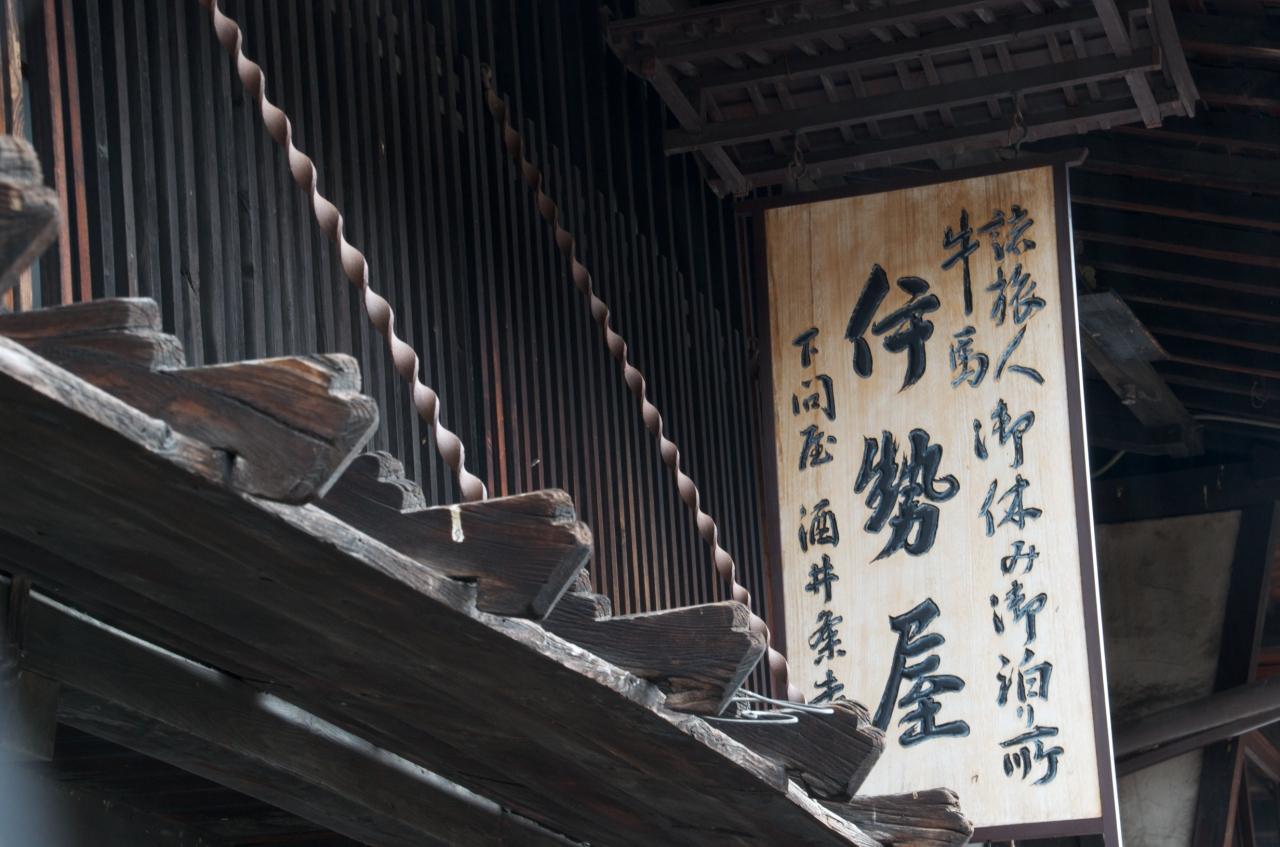 諸旅人御休み御泊り所
牛馬
伊勢屋
下問屋 酒井